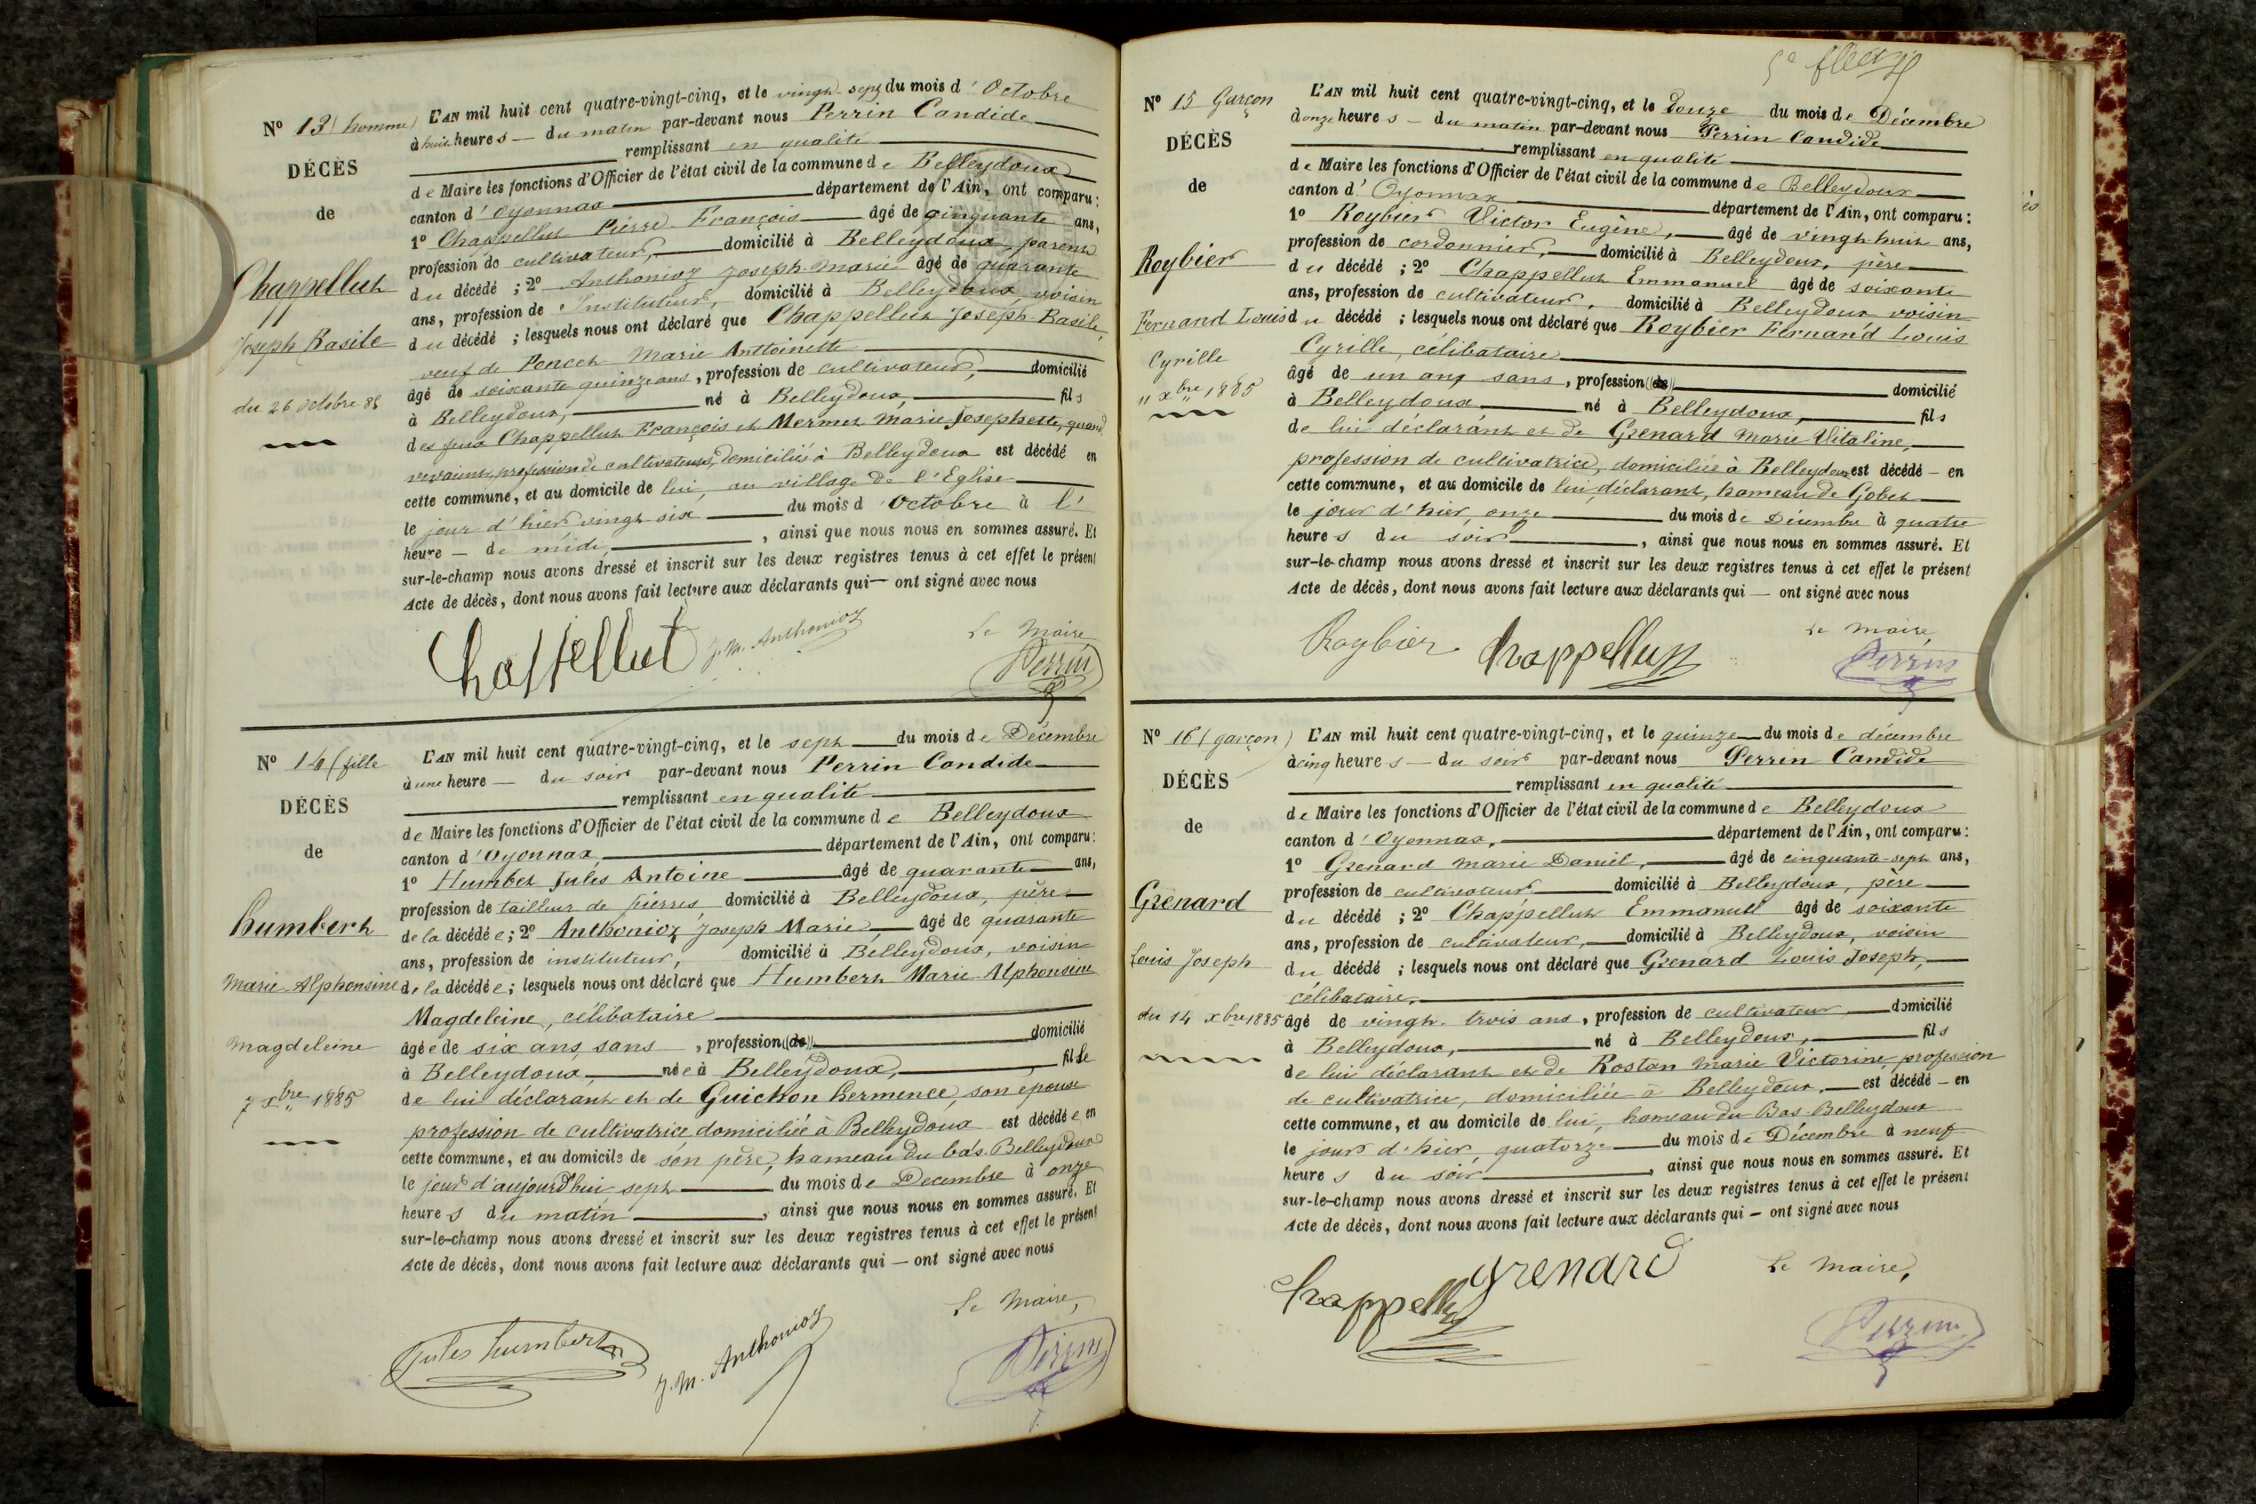 Nº 13 (homme)
DÉCÈS
de
Chappellut
Joseph Basile
du 26 octobre 85
L'AN mil huit cent quatre-vingt-cinq, et le vingt-sept du mois d'Octobre
à huit heures — du matin par-devant nous Perrin Candide
remplissant en qualité
de Maire les fonctions d'Officier de l'état civil de la commune de Belleydoux
canton d'Oyonnax département de l'Ain, ont comparu :
1º Chappellut Pierre François âgé de cinquante ans,
profession de cultivateur, domicilié à Belleydoux, parent
du décédé ; 2º Anthonioz Joseph-Marie âgé de quarante
ans, profession de Instituteur, domicilié à Belleydoux, voisin
du décédé ; lesquels nous ont déclaré que Chappellut Joseph Basile,
veuf de Poncet Marie Anttoinette
âgé de soixante quinze ans, profession de cultivateur, domicilié
à Belleydoux, né à Belleydoux, fils
des feux Chappellut François et Mermet Marie Josephette, quand
vivaient, profession de cultivateurs, domiciliés à Belleydoux est décédé en
cette commune, et au domicile de lui, au village de l'Eglise
le jour d'hier vingt six du mois d'Octobre à l'
heure — de midi, ainsi que nous nous en sommes assuré. Et
sur-le-champ nous avons dressé et inscrit sur les deux registres tenus à cet effet le présent
Acte de décès, dont nous avons fait lecture aux déclarants qui — ont signé avec nous
Chappellut J. M. Anthonioz Le Maire
Perrin
Nº 14 (fille
DÉCÈS
de
humbert
Marie Alphonsine
Magdeleine
7 xbre 1885
L'AN mil huit cent quatre-vingt-cinq, et le sept du mois de Décembre
à une heure — du soir par-devant nous Perrin Candide
remplissant en qualité
de Maire les fonctions d'Officier de l'état civil de la commune de Belleydoux
canton d'Oyonnax, département de l'Ain, ont comparu :
1º Humbert Jules Antoine âgé de quarante ans,
profession de tailleur de pierres domicilié à Belleydoux, père
de la décédée ; 2º Anthonioz Joseph Marie, âgé de quarante
ans, profession de instituteur, domicilié à Belleydoux, voisin
de la décédée ; lesquels nous ont déclaré que Humbert Marie Alphonsine
Magdeleine, célibataire
âgée de six ans, sans, profession ((de)) domicilié
à Belleydoux, née à Belleydoux, fille
de lui déclarant et de Guichon hermence, son épouse
profession de cultivatrice domiciliée à Belleydoux est décédée en
cette commune, et au domicile de son père, hameau du bas-Belleydoux
le jour d'aujourd'hui sept du mois de Decembre à onze
heures du matin, ainsi que nous nous en sommes assuré. Et
sur-le-champ nous avons dressé et inscrit sur les deux registres tenus à cet effet le présent
Acte de décès, dont nous avons fait lecture aux déclarants qui — ont signé avec nous
Le Maire,
Jules humbert J. M. Anthonioz Perrin
Nº 15 Garçon
DÉCÈS
de
Roybier
Fernand Louis
Cyrille
11 xbre 1885
L'AN mil huit cent quatre-vingt-cinq, et le douze du mois de Décembre
à onze heures — du matin par-devant nous Perrin Candide
remplissant en qualité
de Maire les fonctions d'Officier de l'état civil de la commune de Belleydoux
canton d'Oyonnax département de l'Ain, ont comparu :
1º Roybier Victor Eugène, âgé de vingt-huit ans,
profession de cordonnier, domicilié à Belleydoux, père
du décédé ; 2º Chappellut Emmanuel âgé de soixante
ans, profession de cultivateur, domicilié à Belleydoux voisin
du décédé ; lesquels nous ont déclaré que Roybier Fernand Louis
Cyrille, célibataire
âgé de un an, sans, profession ((de)) domicilié
à Belleydoux né à Belleydoux, fils
de lui déclarant et de Grenard Marie Vitaline,
profession de cultivatrice, domiciliée à Belleydoux est décédé — en
cette commune, et au domicile de lui, déclarant, hameau de Gobet
le jour d'hier, onze du mois de Décembre à quatre
heures du soir, ainsi que nous nous en sommes assuré. Et
sur-le-champ nous avons dressé et inscrit sur les deux registres tenus à cet effet le présent
Acte de décès, dont nous avons fait lecture aux déclarants qui — ont signé avec nous
Roybier Chappellut Le Maire,
Perrin
Nº 16 (garçon)
DÉCÈS
de
Grenard
Louis Joseph
du 14 xbre 1885
L'AN mil huit cent quatre-vingt-cinq, et le quinze du mois de décembre
à cinq heures — du soir par-devant nous Perrin Candide
remplissant en qualité
de Maire les fonctions d'Officier de l'état civil de la commune de Belleydoux
canton d'Oyonnax, département de l'Ain, ont comparu :
1º Grenard Marie Daniel, âgé de cinquante-sept ans,
profession de cultivateur domicilié à Belleydoux, père
du décédé ; 2º Chappellut Emmanuel âgé de soixante
ans, profession de cultivateur, domicilié à Belleydoux, voisin
du décédé ; lesquels nous ont déclaré que Grenard Louis Joseph,
célibataire,
âgé de vingt-trois ans, profession de cultivateur domicilié
à Belleydoux, né à Belleydoux, fils
de lui déclarant et de Rostan Marie Victorine, profession
de cultivatrice, domiciliée à Belleydoux, est décédé — en
cette commune, et au domicile de lui, hameau du Bas-Belleydoux
le jour d'hier, quatorze du mois de Décembre à neuf
heures du soir, ainsi que nous nous en sommes assuré. Et
sur-le-champ nous avons dressé et inscrit sur les deux registres tenus à cet effet le présent
Acte de décès, dont nous avons fait lecture aux déclarants qui — ont signé avec nous
Chappellut Grenard Le Maire,
Perrin